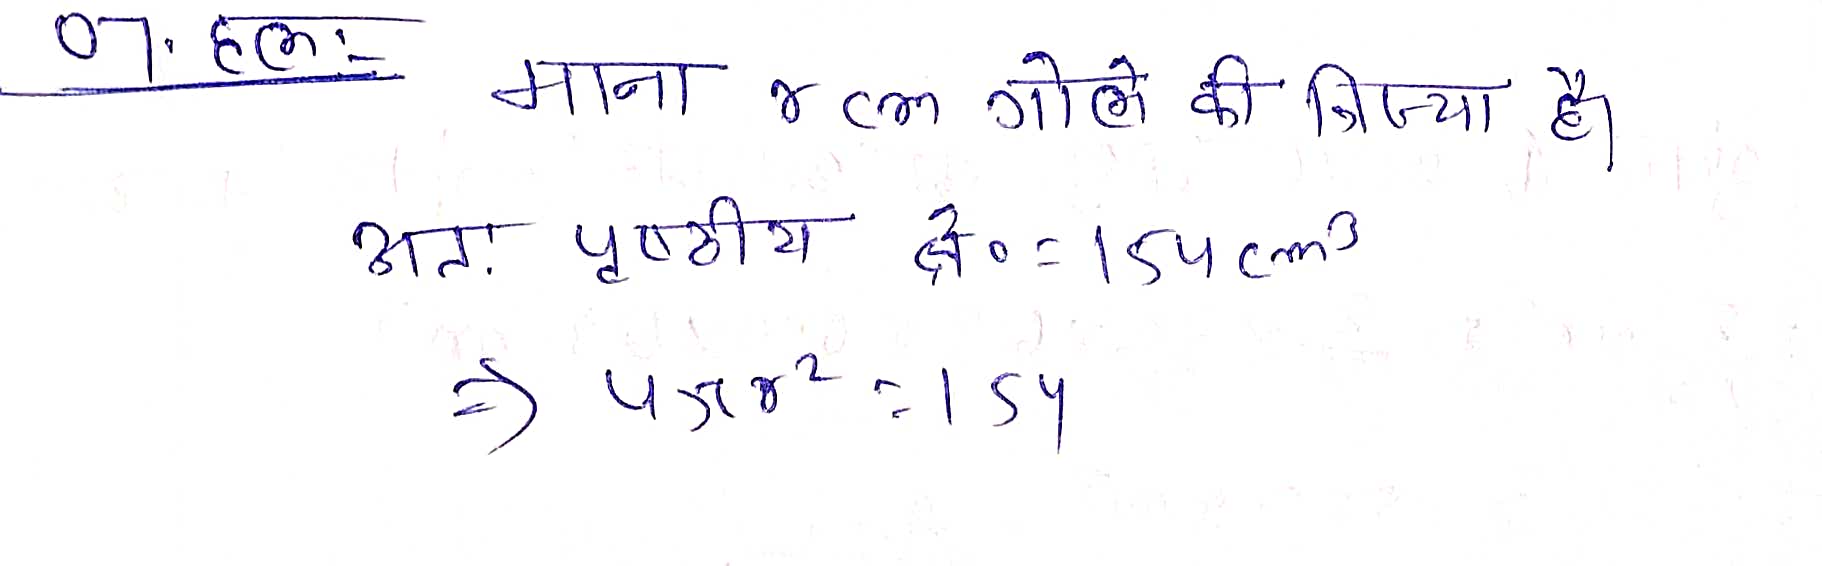 07. हल:-
माना r cm गोले की त्रिज्या है।
अत: पृष्ठीय क्षे० = 154 cm³
⇒ 4πr² = 154